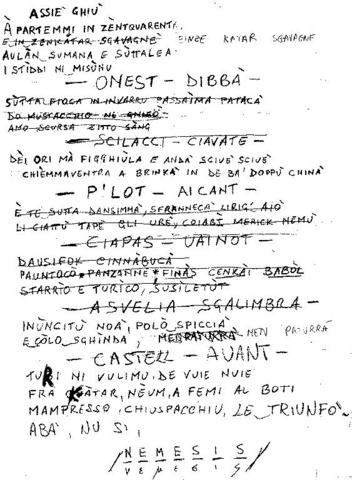 ASSIE GHIÙ
À PARTEMMI IN ZÈNTQUARENTA
E IN ZENIKATAR SGAVAGNÈ EINCE KATAR SGAVAGNE
AULÀN SUMANA E SUTTALEA
I STIDDI NI MISÙNU
— ONEST - DIBBÀ —
IN INVARRU PASSAIMA PATACÀ
DO MUSTACCHIO NE GNISÒ
AMO SCURSA ZITTO SÀNG
— SCILACCI - CIAVATE —
DÈI ORI MÀ FIGGHIÙLA E ANDÀ SCIVÈ SCIVÈ
CHIEMMAVENTRA A BRINKÀ IN DE BA' DOPPÙ CHINÀ
— P'LOT - AICANT —
È TE SUTTA DANSIMMA, SFRANNECA LIRIG' AIÒ
LI CIATU TAPÈ GLI URÈ, COIABÌ MERICK NEMÙ
— CIAPAS - UAINOT —
DAUSIFOK CINNABUCÀ
PAUNTOCO PANZANNE FINÀS CENKAI BABÒL
STARRÌO E TURICO, SUSILETUT
— ASVELIA SGALIMBRA —
INUNCITÙ NOÀ, POLÒ SPICCIÀ
E COLO SGHINDA, NEN PATURRÀ
— CASTELL - AVANT —
TURI NI VULIMU, DE VUIE NUIE
FRA KATAR, NÈUM, A FEMI AL BOTI
MAMPRESSO, CHIUSPACCHIU, LE TRIUNFO
ABÀ, NU SI,
/ N E M E S I S /
ν ε μ ε σ ι ς